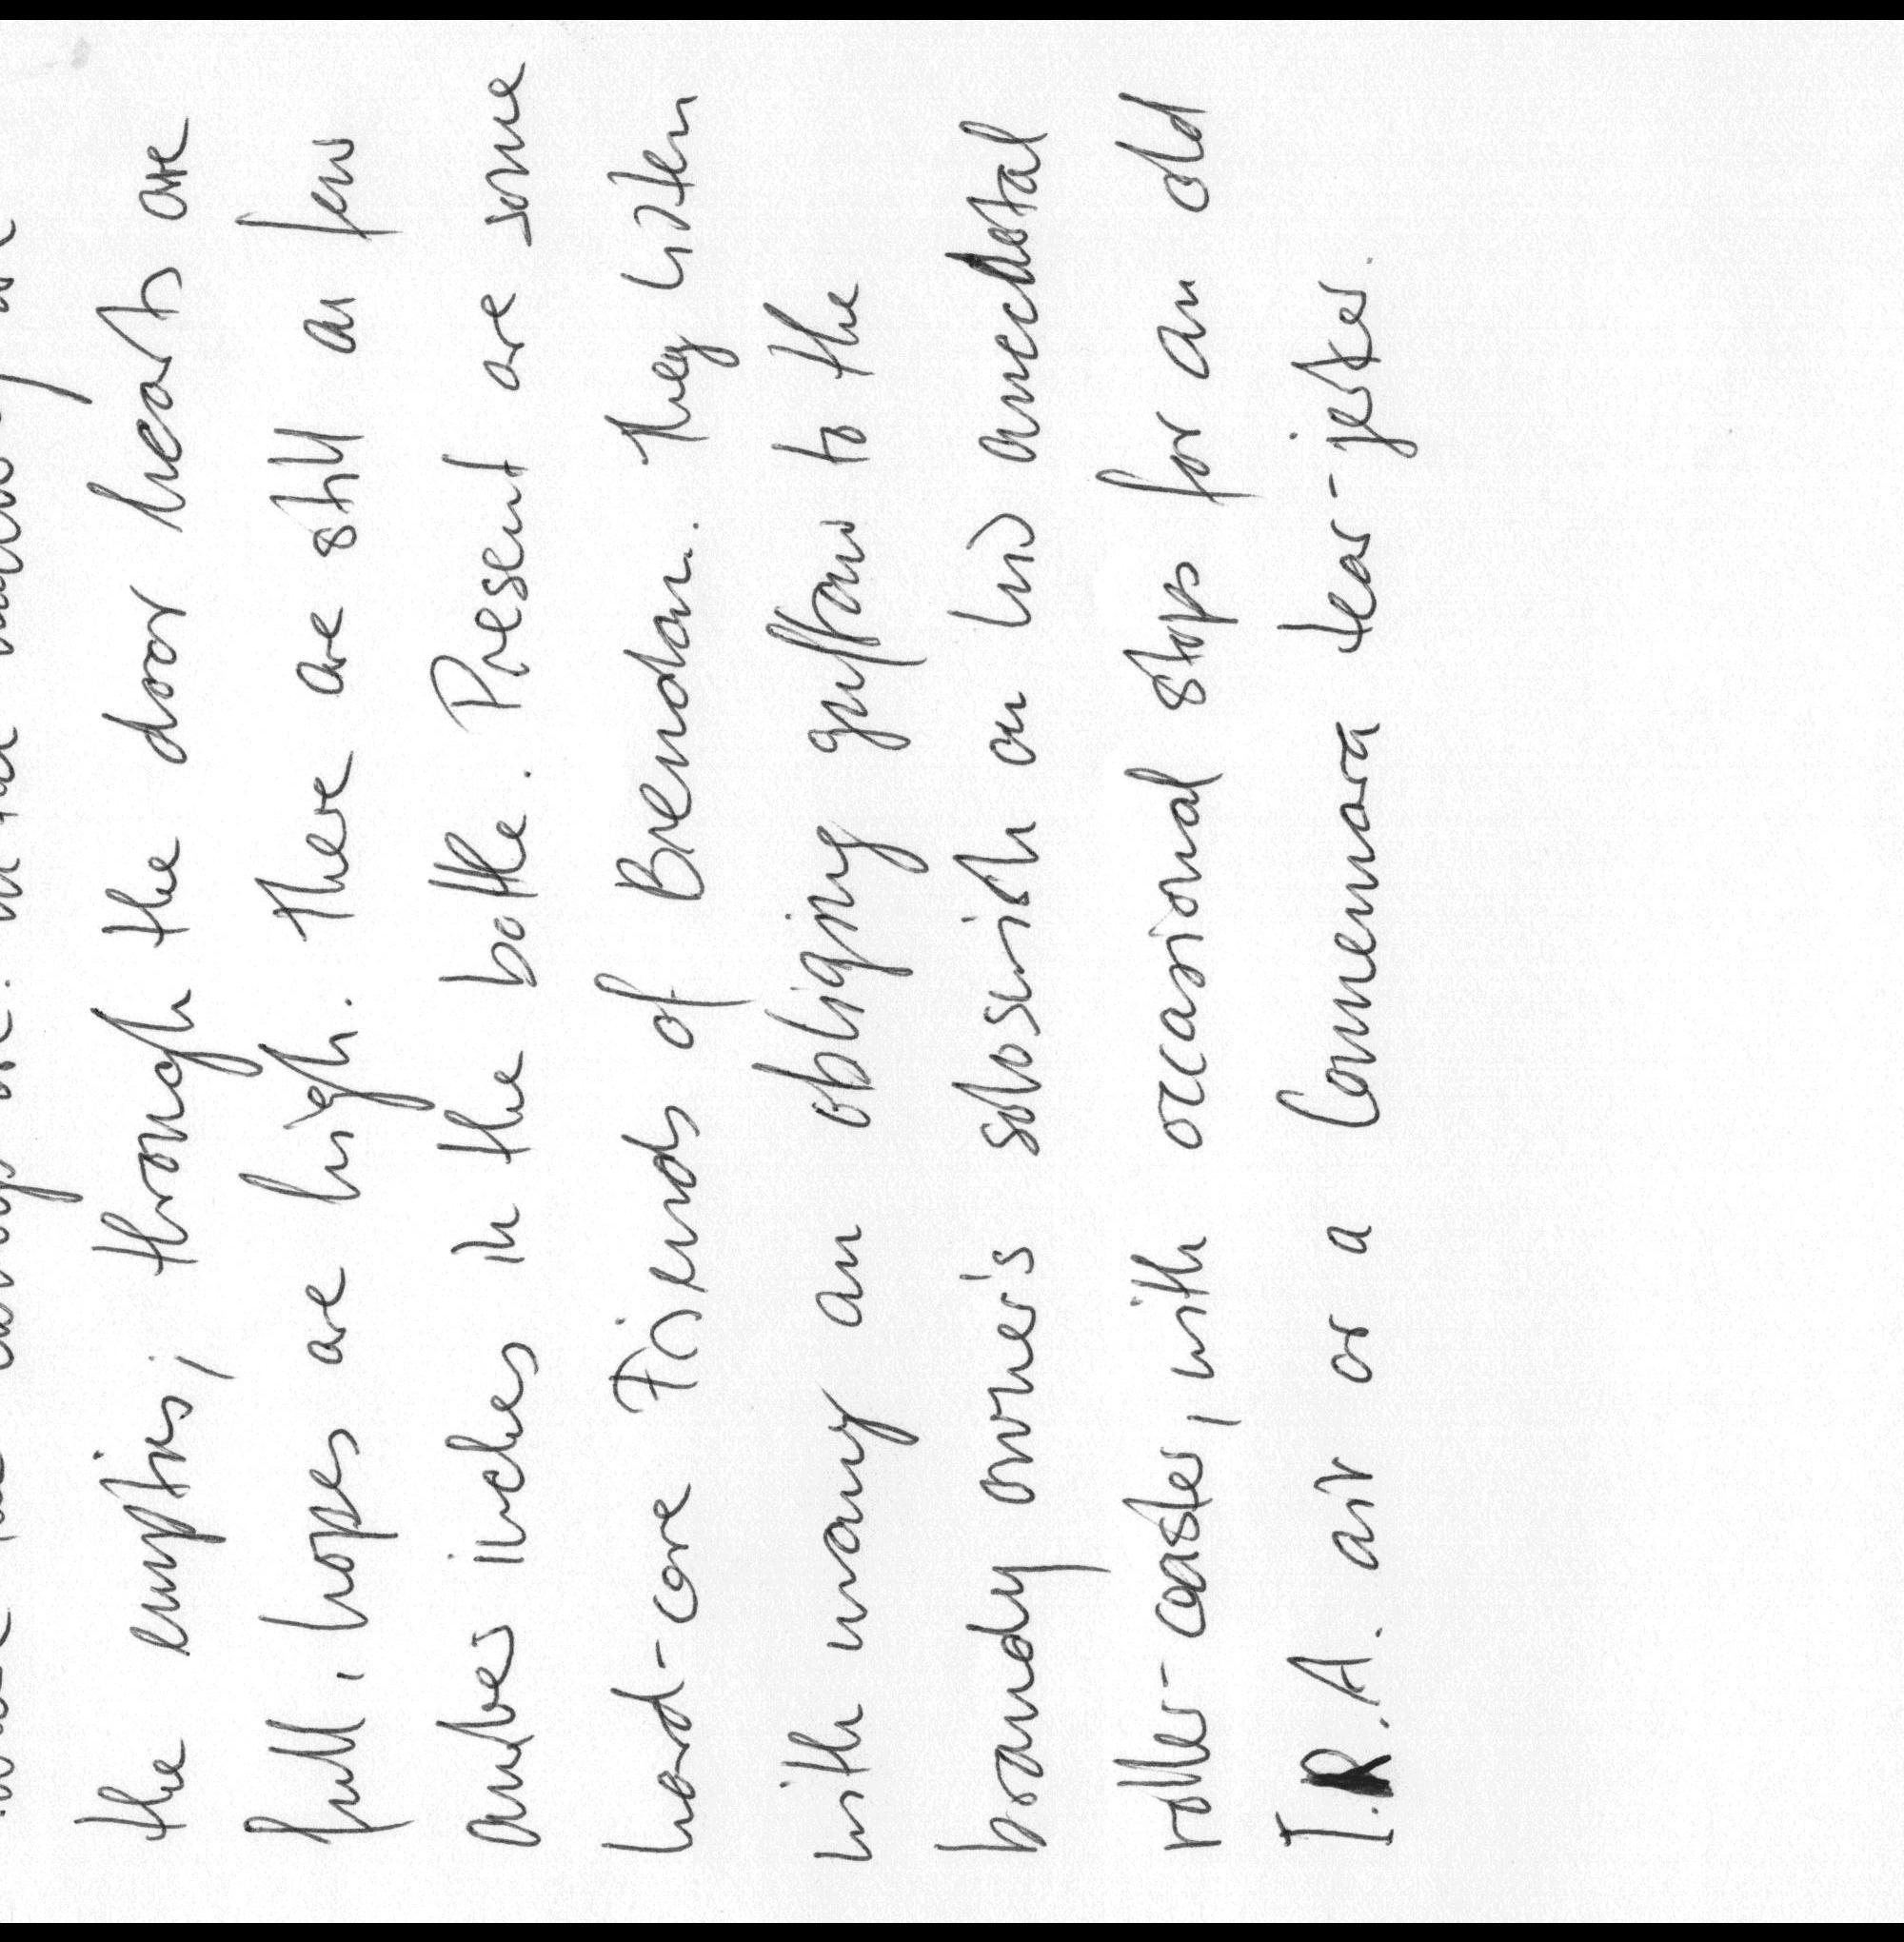 the empties; through the door hearts are
full, hopes are high. There are still a few
amber inches in the bottle. Present are some
hard-core Friends of Brendan. They listen
with many an obliging guffaw to the
brandy owner's solosinith on his anecdotal
roller-coaster, with occasional stops for an old
I.R.A. air or a Connemara tear-jerker.